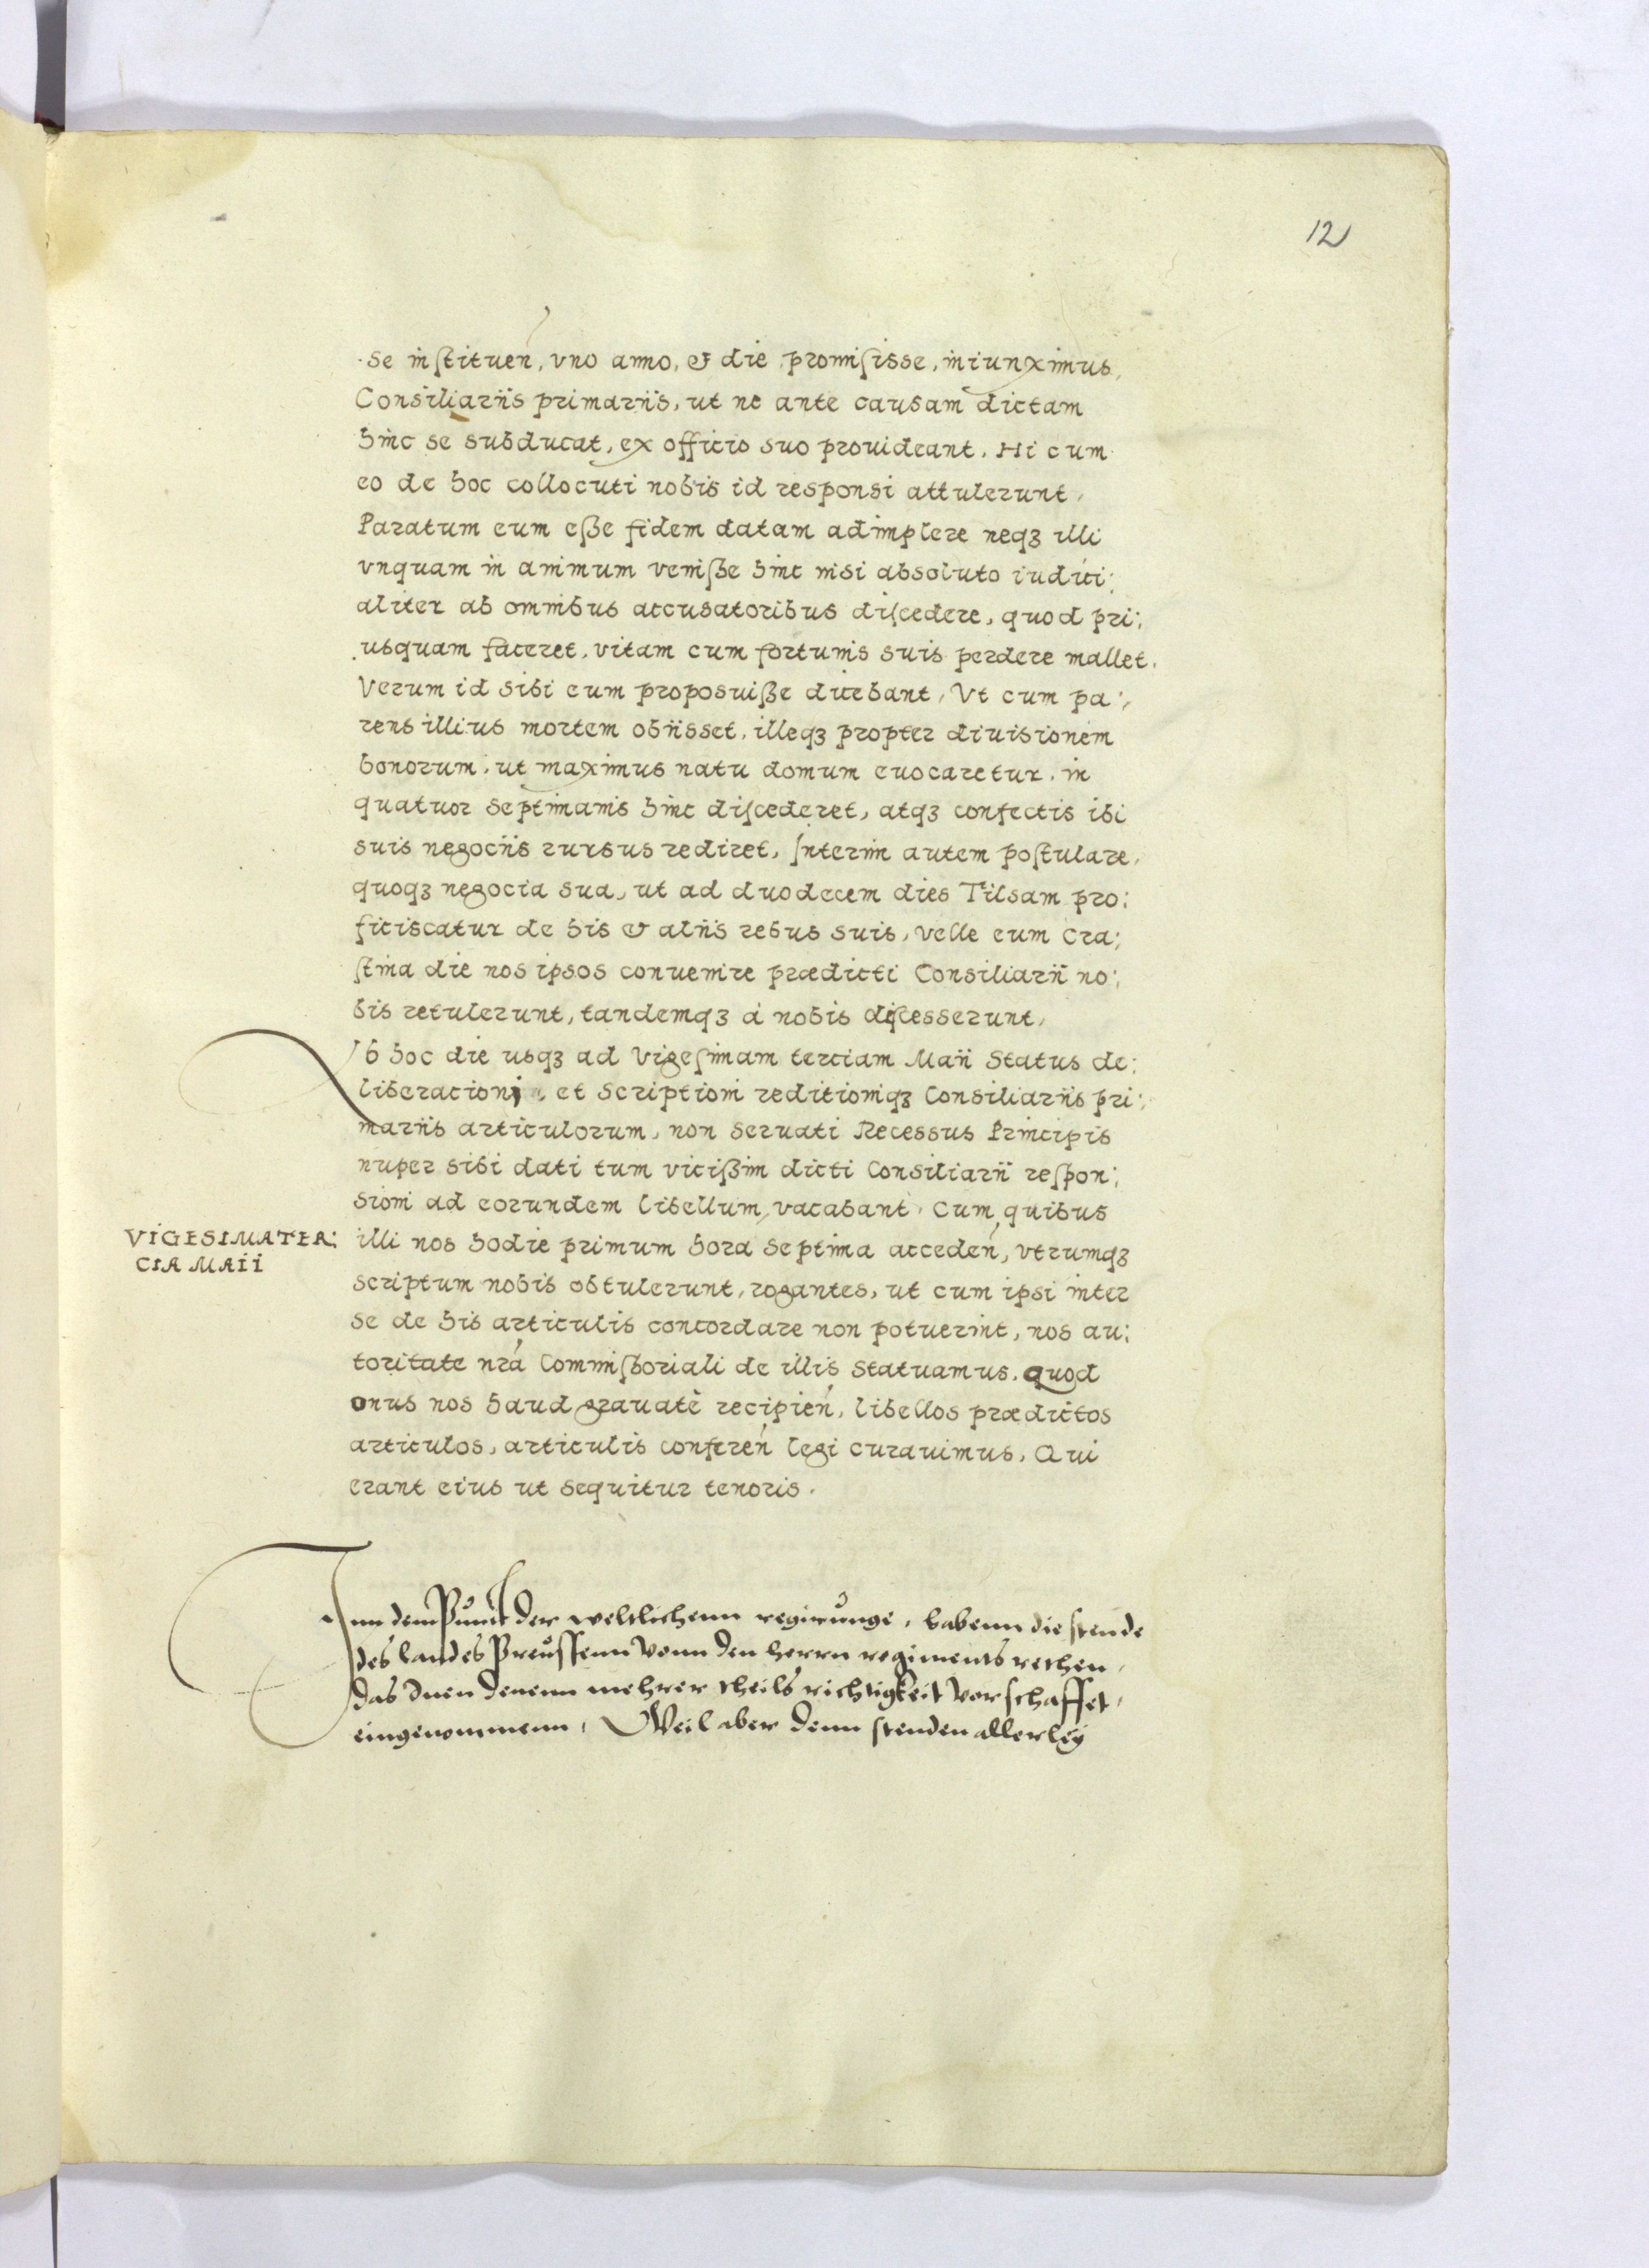 12
se inſtituen, vno anno, & die promiſisse, iniunximus,
Consiliariis primariis, ut ne ante causam dictam
hinc se subducat, ex officio suo prouideant. Hi cum
eo de hoc collocuti nobis id responsi attulerunt,
Paratum eum eſse fidem datam adimplere neqꝫ illi
vnquam in animum veniſse hinc nisi absoluto iudici:
aliter ab omnibus accusatoribus diſcedere, quod pri:
usquam faceret, vitam cum fortunis suis perdere mallet.
Verum id sibi eum proposuiſse dicebant, Vt cum pa:
rens illius mortem obiisset, illeqꝫ propter diuisionem
bonorum, ut maximus natu domum euocaretur, in
quatuor septimanis hinc diſcederet, atqꝫ confectis ibi
suis negociis rursus rediret, Interim autem poſtulare,
quoqꝫ negocia sua, ut ad duodecem dies Tilsam pro:
ficiscatur de his & aliis rebus suis, velle eum Cra:
ſtina die nos ipsos conuenire prædicti Consiliarii no:
bis retulerunt, tandemqꝫ á nobis diſcesserunt,
Ab hoc die usqꝫ ad Vigeſimam terciam Maii Status de:
liberacioni, et Scriptioni reditioniqꝫ Consiliariis pri:
mariis articulorum, non seruati Recessus Principis
nuper sibi dati tum viciſsim dicti Consiliarii reſpon:
sioni ad eorundem libellum vacabant. Cum quibus
VIGESIMA TER:
CIA MAII
illi nos hodie primum hora septima acceden, vtrumqꝫ
scriptum nobis obtulerunt, rogantes, ut cum ipsi inter
se de his articulis concordare non potuerint, nos au:
toritate nrá Commiſsoriali de illis statuamus. quod
onus nos haud grauatè recipien, libellos prædictos
articulos, articulis conferen legi curauimus, Qui
erant eius ut sequitur tenoris.
Inn dem Punct der weltlichenn regirunge, habenn die stende
des landes Preussenn vonn den herrn regiments rethen,
das Inen denenn mehrer theils richtigkeit vorschaffet,
eingenommenn, Weil aber denn stenden allerley